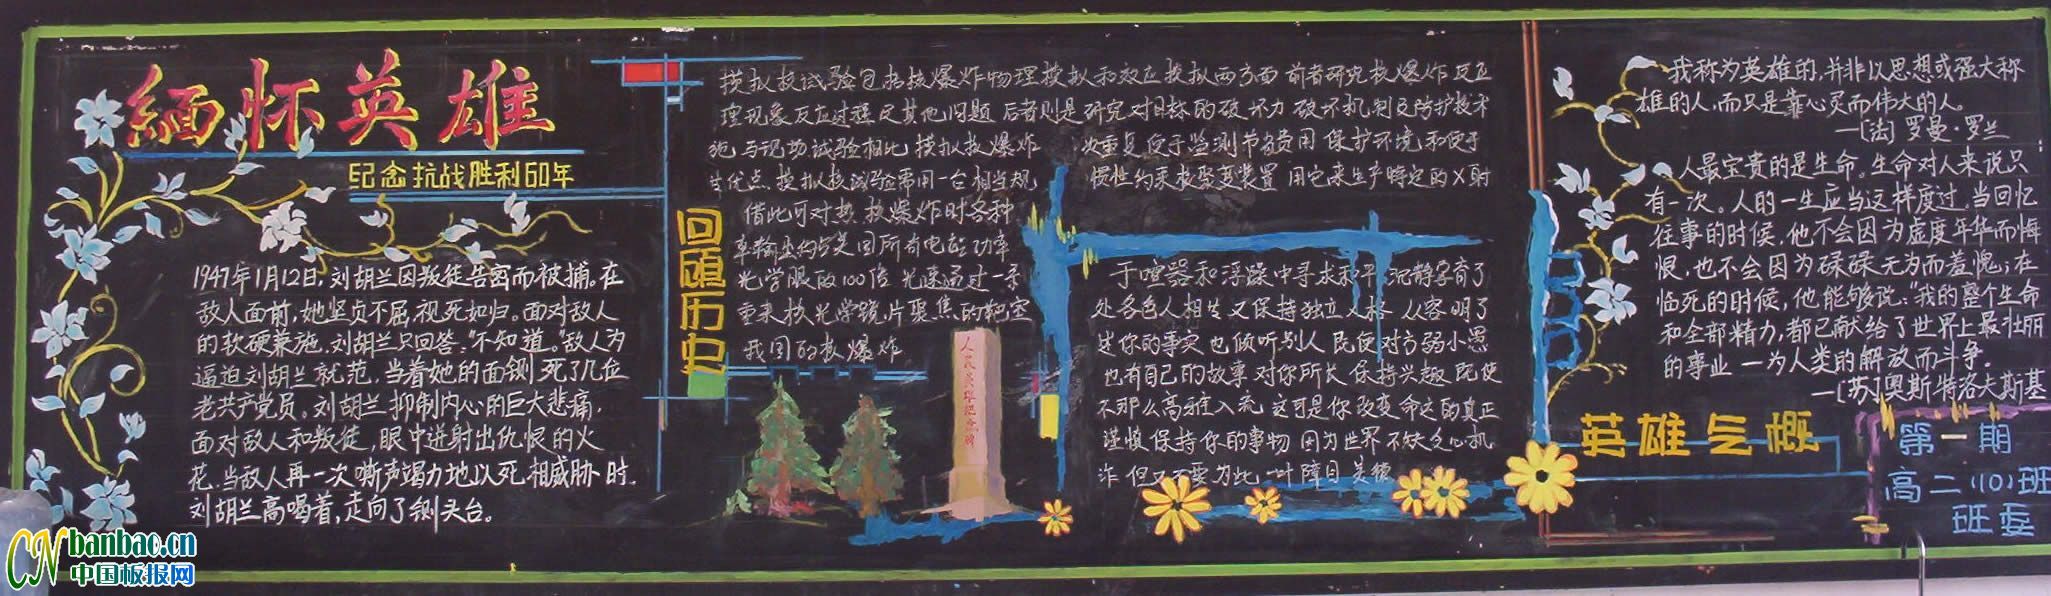 缅怀英雄
纪念抗战胜利60年
1947年1月12日,刘胡兰因叛徒告密而被捕。在
敌人面前,她坚贞不屈,视死如归。面对敌人
的软硬兼施,刘胡兰只回答:"不知道。"敌人为
逼迫刘胡兰就范,当着她的面铡死了几位
老共产党员。刘胡兰抑制内心的巨大悲痛,
面对敌人和叛徒,眼中迸射出仇恨的火
花,当敌人再一次嘶声竭力地以死相威胁时,
刘胡兰高喝着,走向了铡头台。
回顾历史
模拟核试验包括核爆炸物理模拟和效应模拟两方面 前者研究核爆炸反应
理现象反应过程及其他问题 后者则是研究对目标的破坏力 破坏机制及防护技术
施 与现场试验相比 模拟核爆炸
重复 便于监测 节省费用 保护环境和便于
模拟核试验需用一台相当规
惯性约束核聚变装置 用它来生产特定的X射
借此可对核爆炸时各种
光学眼的100倍 光速通过一系
我国的核爆炸
人民英雄纪念碑
于喧嚣和浮躁中寻求和平 沉静孕育了
处各色人相生 又保持独立人格 从容明了
述你的事实 也倾听别人 既使对方弱小愚
也有自己的故事 对你所长 保持兴趣 既使
不那么高雅入流 这可是你改变命运的真正
谨慎保持你的事物 因为世界不缺乏心机
诈 但又不要为此一叶障目 美德
我称为英雄的,并非以思想或强大称
雄的人,而只是靠心灵而伟大的人。
—[法]罗曼·罗兰
人最宝贵的是生命。生命对人来说只
有一次。人的一生应当这样度过,当回忆
往事的时候,他不会因为虚度年华而悔
恨,也不会因为碌碌无为而羞愧;在
临死的时候,他能够说:"我的整个生命
和全部精力,都已献给了世界上最壮丽
的事业——为人类的解放而斗争。
—[苏]奥斯特洛夫斯基
英雄气概
第一期
高二(10)班
班委
CN banbao.cn
中国板报网